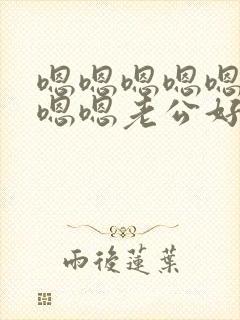 嗯嗯嗯嗯嗯
嗯嗯老公好
雨後蓮葉